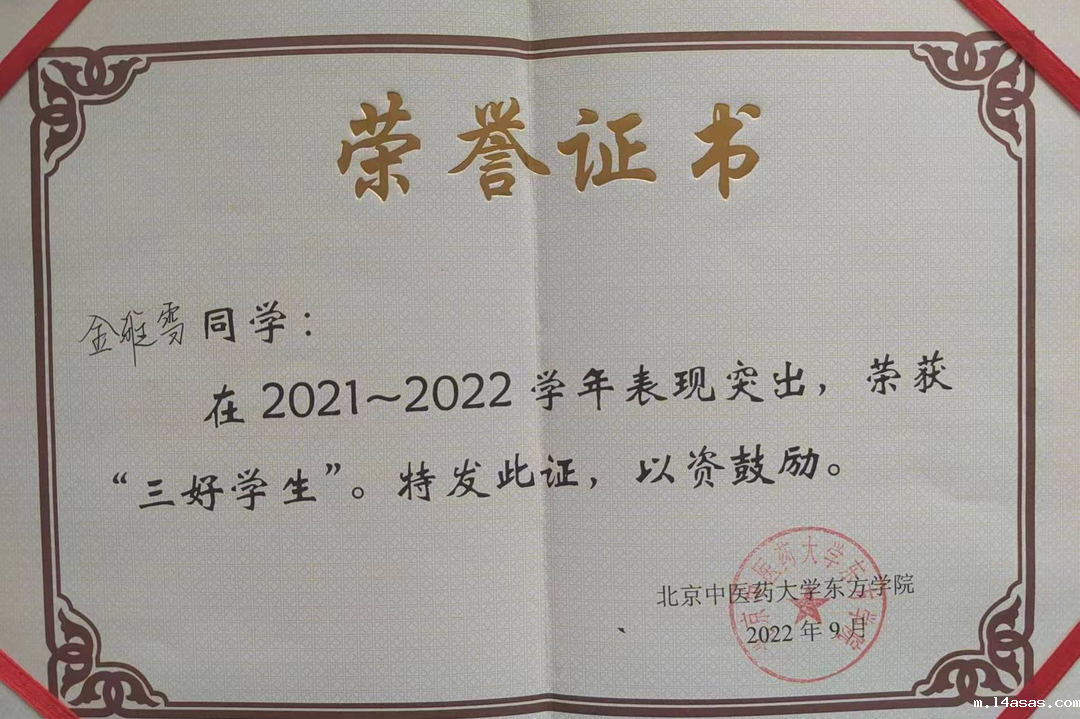 荣誉证书
金雅雪同学：
在2021~2022学年表现突出，荣获
“三好学生”。特发此证，以资鼓励。
北京中医药大学东方学院
2022年9月
北京中医药大学东方学院
m.14asas.com